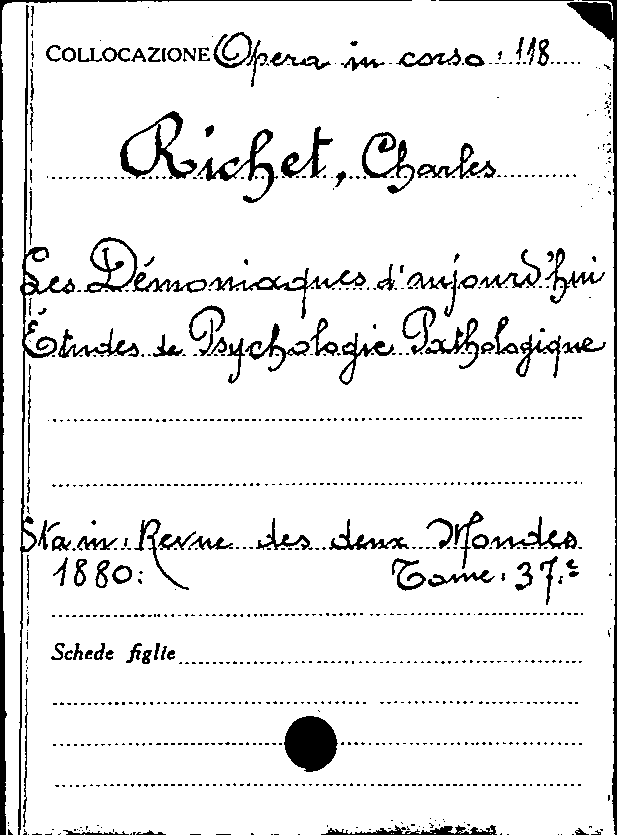 COLLOCAZIONE Opera in corso: 118
Richet, Charles
Les Démoniaques d'aujourd'hui
Études de Psychologie Pathologique
Sta in: Revue des deux Mondes
1880: Tome: 37.e
Schede figlie